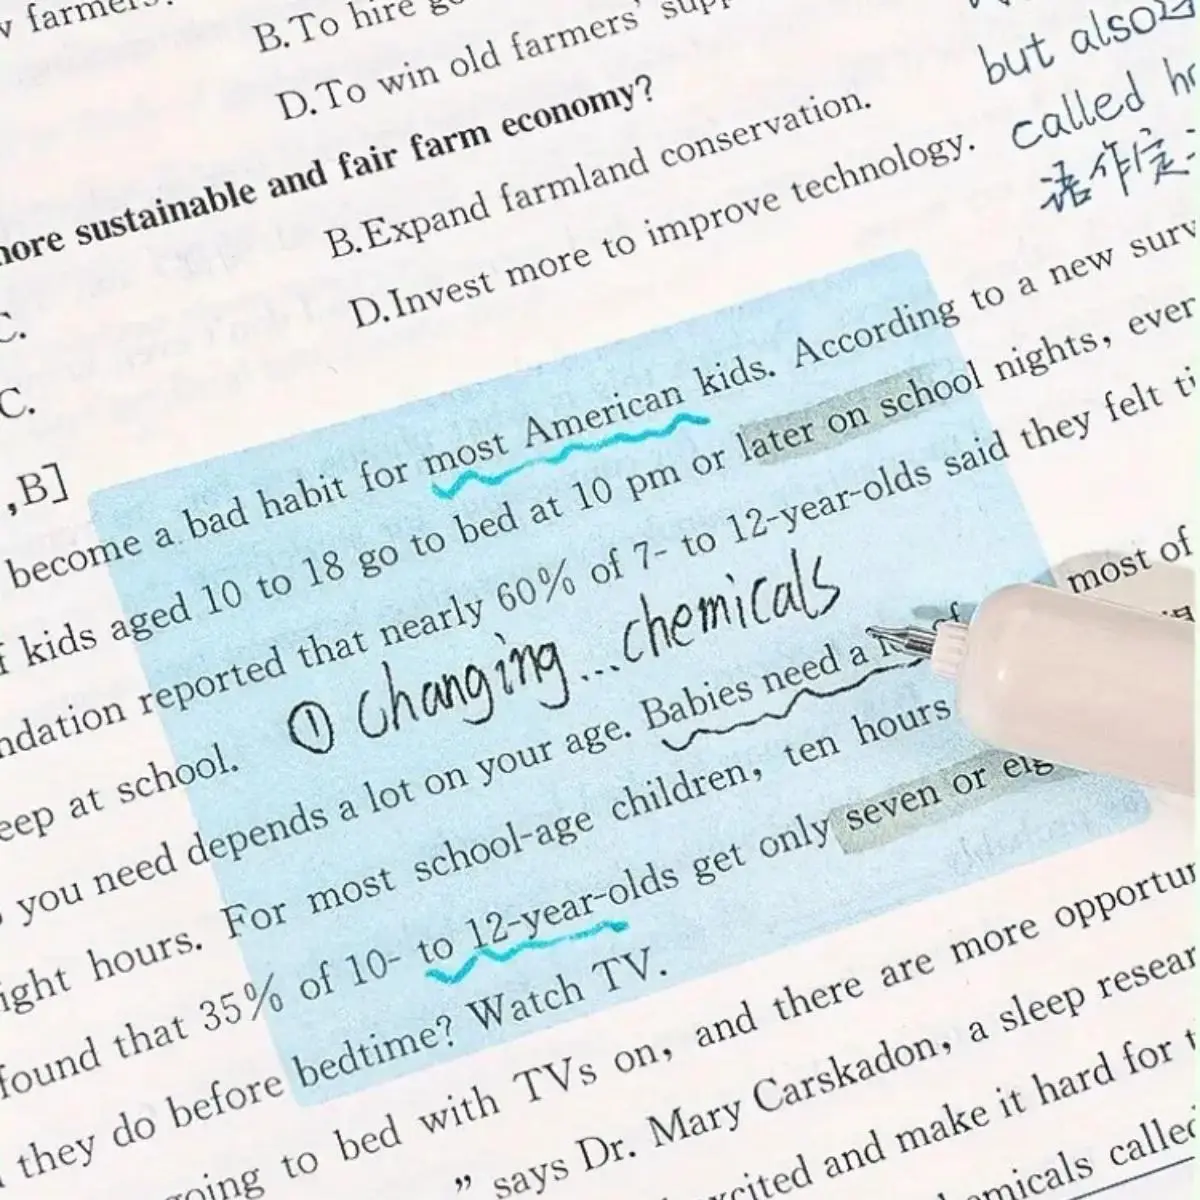 farmers?
B.To hire
D.To win old farmers'
but also
called
more sustainable and fair farm economy?
语作定
B.Expand farmland conservation.
C.
D.Invest more to improve technology.
C.
,B]
become a bad habit for most American kids. According to a new
kids aged 10 to 18 go to bed at 10 pm or later on school nights,
reported that nearly 60% of 7- to 12-year-olds said they felt
at school. ① Changing...chemicals
you need depends a lot on your age. Babies need a most of
hours. For most school-age children, ten hours
found that 35% of 10- to 12-year-olds get only seven or
they do before bedtime? Watch TV.
going to bed with TVs on, and there are more
” says Dr. Mary Carskadon, a sleep
and make it hard for
called